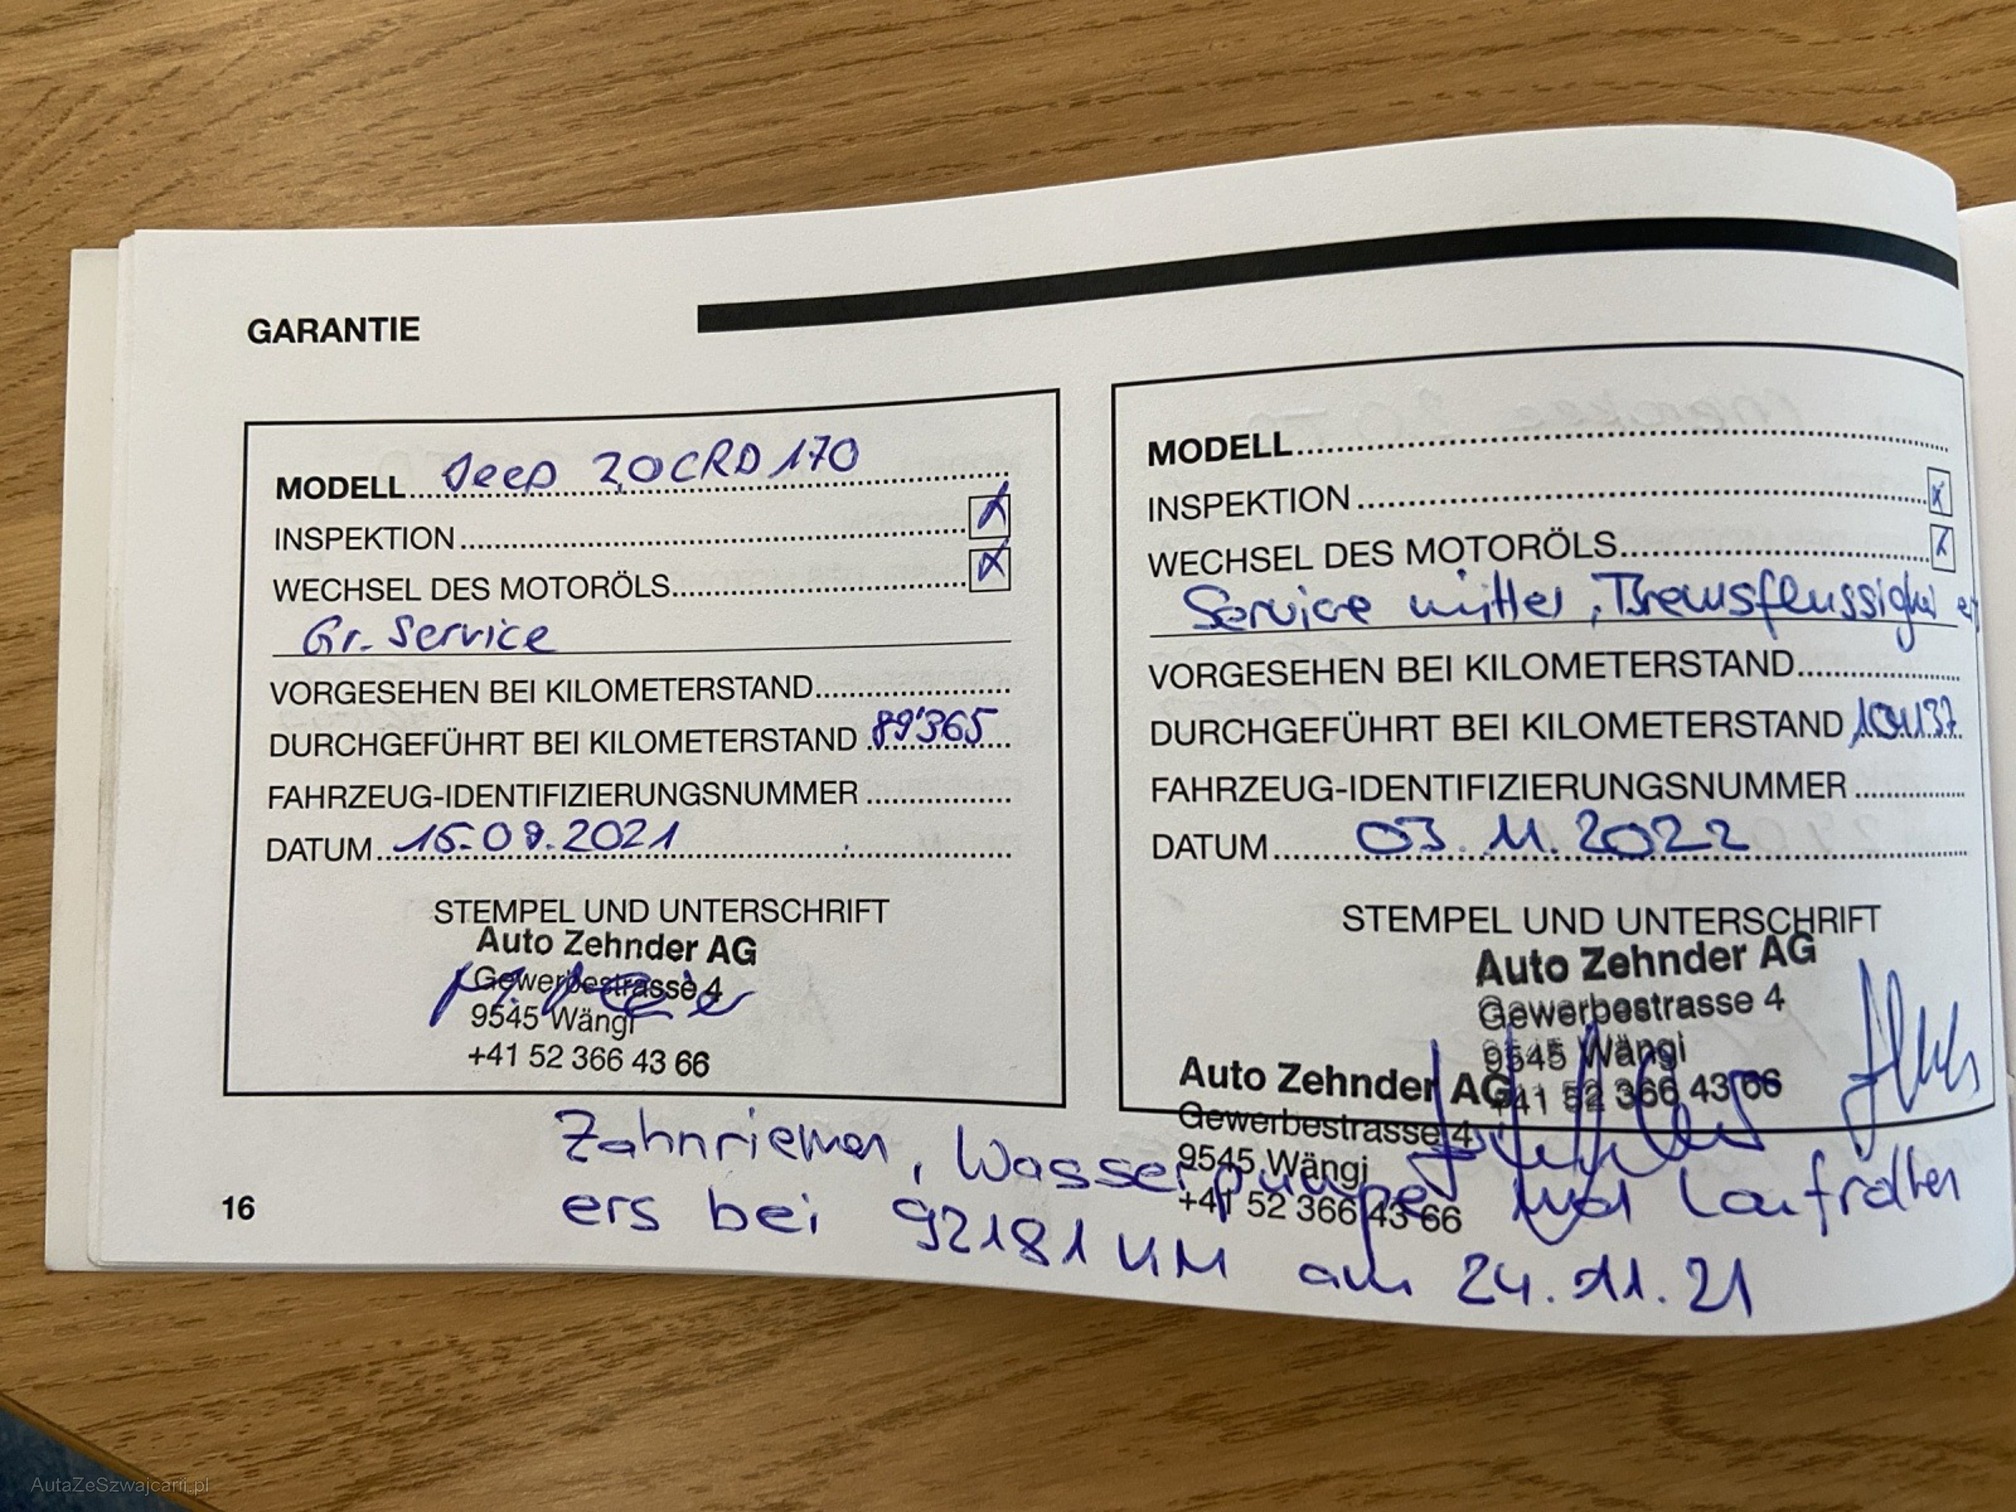 GARANTIE
MODELL Jeep 2,0 CRD 170
INSPEKTION X
WECHSEL DES MOTORÖLS X
Gr. Service
VORGESEHEN BEI KILOMETERSTAND
DURCHGEFÜHRT BEI KILOMETERSTAND 89'365
FAHRZEUG-IDENTIFIZIERUNGSNUMMER
DATUM 15.09.2021
STEMPEL UND UNTERSCHRIFT
Auto Zehnder AG
Gewerbestrasse 4
9545 Wängi
+41 52 366 43 66
MODELL
INSPEKTION X
WECHSEL DES MOTORÖLS X
Service mittel, Bremsflüssigkei
VORGESEHEN BEI KILOMETERSTAND
DURCHGEFÜHRT BEI KILOMETERSTAND
FAHRZEUG-IDENTIFIZIERUNGSNUMMER
DATUM 03.11.2022
STEMPEL UND UNTERSCHRIFT
Auto Zehnder AG
Gewerbestrasse 4
9545 Wängi
+41 52 366 43 66
Auto Zehnder AG
Gewerbestrasse 4
9545 Wängi
+41 52 366 43 66
Zahnriemen, Wasserpumpe und
ers bei 92181 KM am 24.11.21
16
AutaZeSzwajcarii.pl